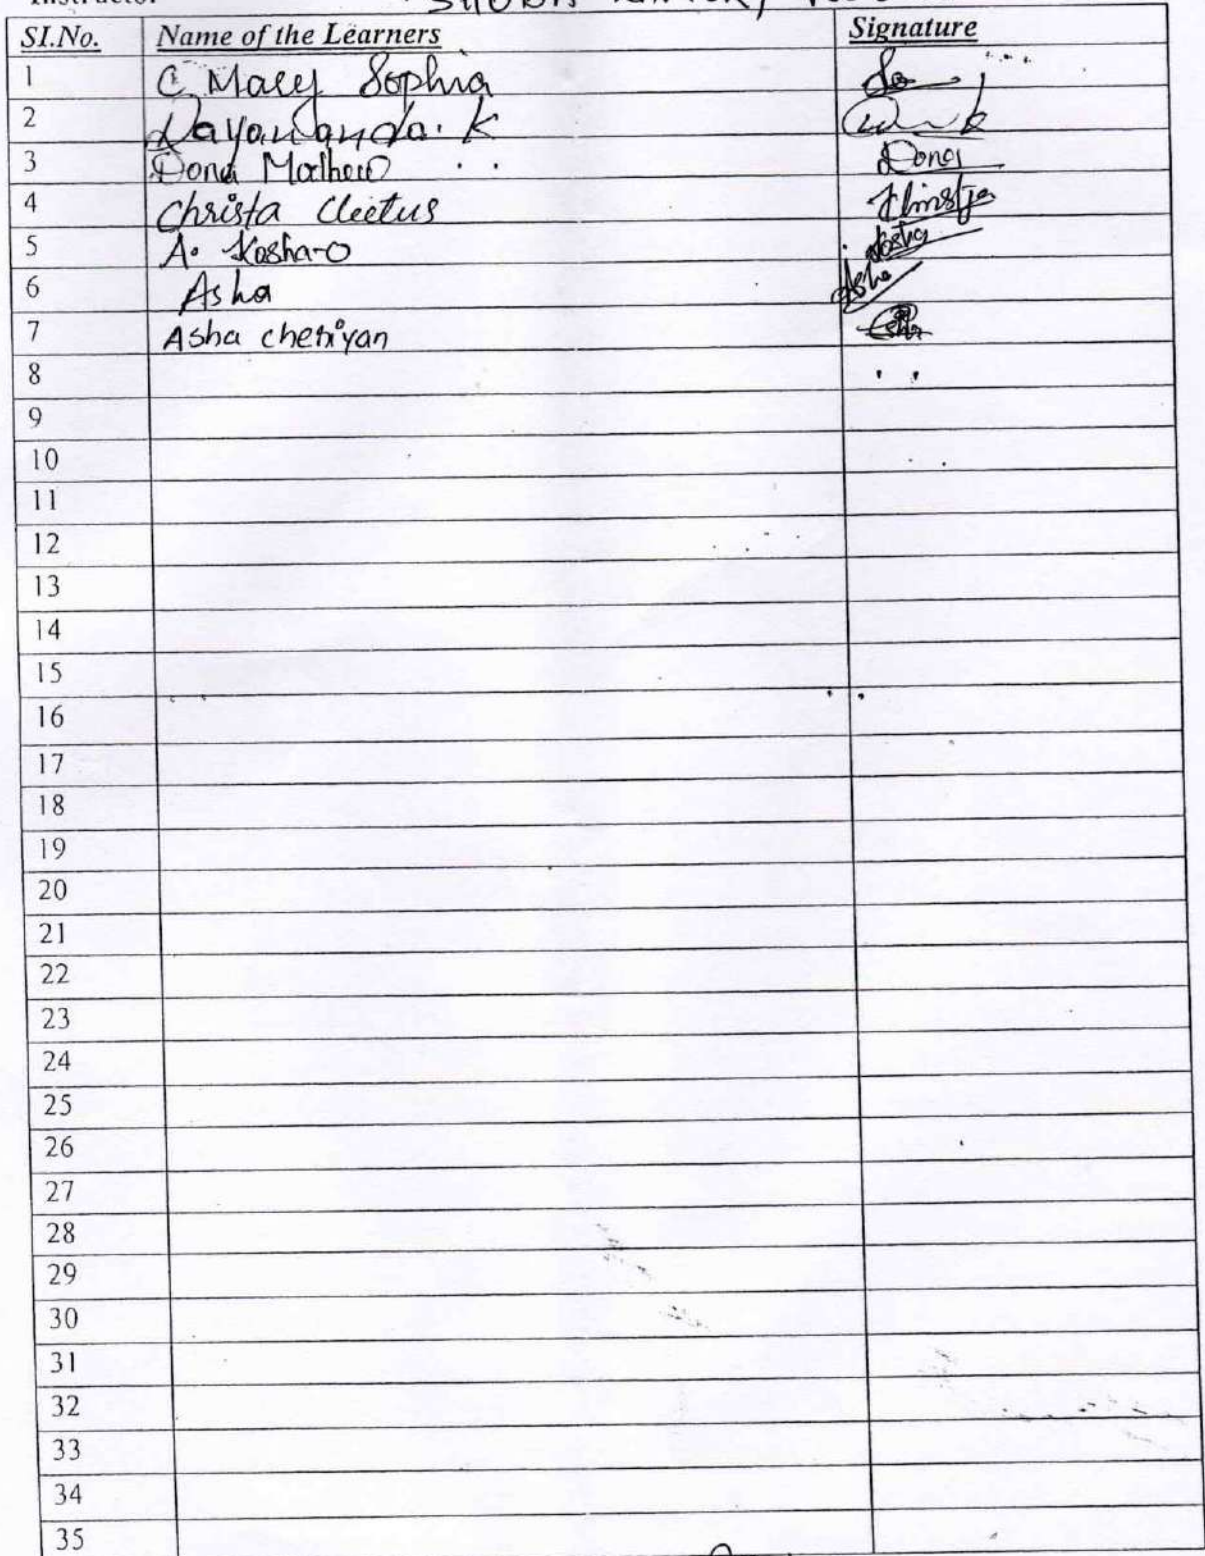 SI.No. Name of the Learners Signature
1 C Mary Sophia
2 Dayananda. K
3 Dona Mathew Dona
4 Christa Cleetus Christa
5 A. Kosha-O Kosha
6 Asha Asha
7 Asha cheriyan
8
9
10
11
12
13
14
15
16
17
18
19
20
21
22
23
24
25
26
27
28
29
30
31
32
33
34
35